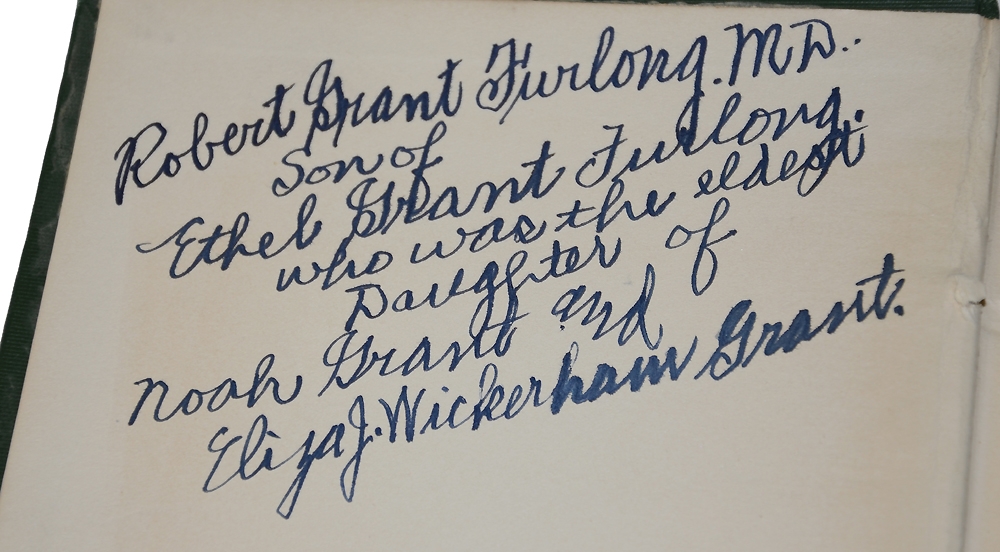 Robert Grant Furlong. M.D..
Son of
Ethel Grant Furlong.
who was the eldest
Daughter of
Noah Grant and
Eliza J. Wickerham Grant.